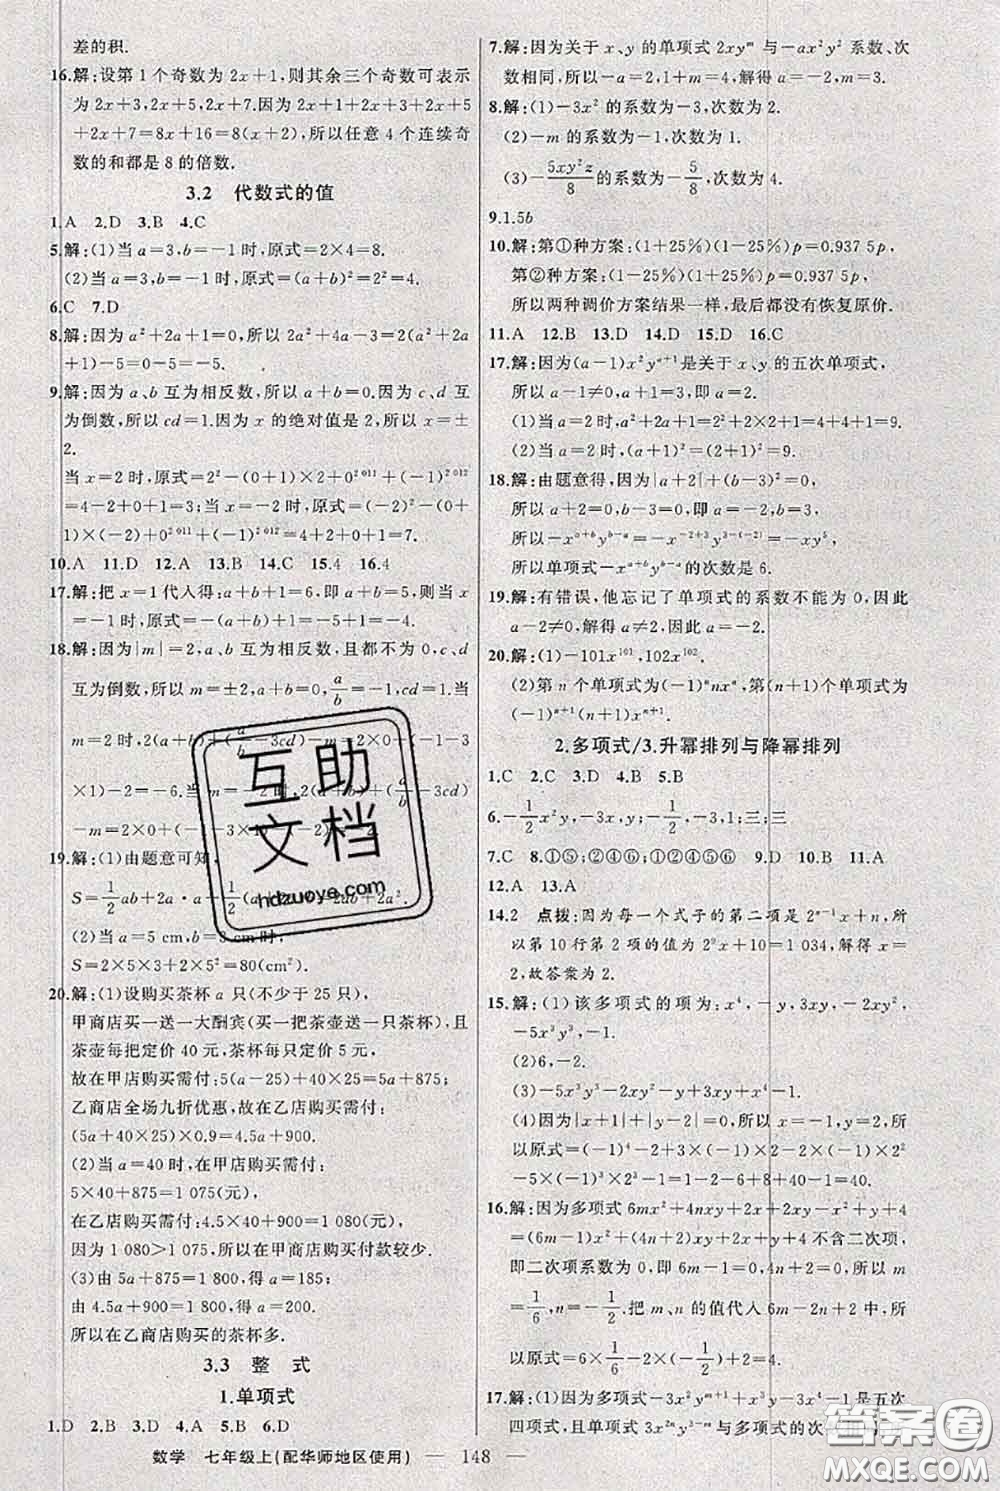 差的积.
16.解:设第 1 个奇数为 2x+1,则其余三个奇数可表示
为 2x+3,2x+5,2x+7.因为 2x+1+2x+3+2x+5
+2x+7=8x+16=8(x+2),所以任意 4 个连续奇
数的和都是 8 的倍数.
3.2 代数式的值
1.A 2.D 3.B 4.C
5.解:(1)当 a=3,b=-1 时,原式=2×4=8.
(2)当 a=3,b=-1 时,原式=2²=4.
6.C 7.D
8.解:因为 a²+2a+1=0,所以 2a²+4a-3=2(a²+2a
+1)-5=0-5=-5.
9.解:因为 a、b 互为相反数,所以 a+b=0.因为 c、d 互
为倒数,所以 cd=1.因为 x 的绝对值是 2,所以 x=±
2.
当 x=2 时,原式=2²-(0+1)×2+0²⁰¹¹+(-1)²⁰¹²
=4-2+0+1=3;当 x=-2 时,原式=(-2)²-(0+
1)×(-2)+0²⁰¹¹+(-1)²⁰¹²=4+2+0+1=7.
10.A 11.D 12.A 13.B 14.C 15.4 16.4
17.解:把 x=1 代入得:a+b+1=6,即 a+b=5,当 x
=-1 时,原式=-a-b+1=-(a+b)+1=-5+1=-4.
18.解:因为|m|=2,a、b 互为相反数,且都不为 0,c、d
互为倒数,所以 m=±2,a+b=0,a/b=-1,cd=1.当
m=2 时,2(a+b)+(a/b-3cd)-m=2×0+(-1-3
×1)-2=-6.当 m=-2 时,2(a+b)+(a/b-3cd)
-m=2×0+(-1-3×1)-(-2)=-2.
19.解:(1)由题意可知,
S=1/2ab+2a·a+1/2
2ab+2a².
(2)当 a=5 cm,b=3 时,
S=2×5×3+2×5²=80(cm²).
20.解:(1)设购买茶杯 a 只(不少于 25 只),
甲商店买一送一大酬宾(买一把茶壶送茶杯一只),且
茶壶每把定价 40 元,茶杯每只定价 5 元,
故在甲店购买需付:5(a-25)+40×25=5a+875;
乙商店全场九折优惠,故在乙店购买需付:
(5a+40×25)×0.9=4.5a+900.
(2)当 a=40 时,在甲店购买需付:
5×40+875=1 075(元),
在乙店购买需付:4.5×40+900=1 080(元),
因为 1 080>1 075,所以在甲商店购买付款较少.
(3)由 5a+875=1 800,得 a=185;
由 4.5a+900=1 800,得 a=200.
所以在乙商店购买的茶杯多.
3.3 整 式
1.单项式
1.D 2.B 3.D 4.A 5.B 6.D
7.解:因为关于 x、y 的单项式 2xyᵐ 与-ax²y² 系数、次
数相同,所以-a=2,1+m=4,解得 a=-2,m=3.
8.解:(1)-3x² 的系数为-3,次数为 2.
(2)-m 的系数为-1,次数为 1.
(3)-5xy²z/8 的系数为-5/8,次数为 4.
9.1.5b
10.解:第①种方案:(1+25%)(1-25%)p=0.937 5p,
第②种方案:(1-25%)(1+25%)p=0.937 5p,
所以两种调价方案结果一样,最后都没有恢复原价.
11.A 12.B 13.D 14.D 15.D 16.C
17.解:因为(a-1)x²yᵃ⁺¹是关于 x、y 的五次单项式,
所以 a-1≠0,a+1=3,即 a=2.
(1)当 a=2 时,a²+2a+1=2²+2×2+1=9.
(2)当 a=2 时,(a+1)²=(2+1)²=9.
18.解:由题意得,因为|a+2|+(b-3)²=0,
所以 a+2=0,b-3=0,即 a=-2,b=3,
所以-xᵃ⁺ᵇyᵇ⁻ᵃ=-x⁻²⁺³y³⁻⁽⁻²⁾=-xy⁵,
所以单项式-xᵃ⁺ᵇyᵇ⁻ᵃ 的次数是 6.
19.解:有错误,他忘记了单项式的系数不能为 0,因此
a-2≠0,解得 a≠2,因此 a=-2.
20.解:(1)-101x¹⁰¹,102x¹⁰².
(2)第 n 个单项式为(-1)ⁿnxⁿ,第(n+1)个单项式为
(-1)ⁿ⁺¹(n+1)xⁿ⁺¹.
2.多项式/3.升幂排列与降幂排列
1.C 2.C 3.D 4.D 5.B
6.-1/2x²y,-3x,y;-1/2,-3,1;三;三
7.C 8.①⑤;②④⑥;①②④⑤⑥ 9.D 10.B 11.A
12.A 13.A
14.2 点拨:因为每一个式子的第二项是 2ⁿ⁻¹x+n,所
以第 10 行第 2 项的值为 2⁹x+10=1 034,解得 x=
2,故答案为 2.
15.解:(1)该多项式的项为:x⁴,-y,3xy,-2xy²,
-5x³y³,-1.
(2)6,-2.
(3)-5x³y³-2xy²-y+3xy+x⁴-1.
(4)因为|x+1|+|y-2|=0,所以 x=-1,y=2,所
以原式=(-1)⁴-2+3×(-1)×2-2×(-1)×2²
-5×(-1)³×2³-1=1-2-6+8+40-1=40.
16.解:因为多项式 6mx²+4nxy+2x+2xy-x²+y+4
=(6m-1)x²+(4n+2)xy+2x+y+4 不含二次项,
即二次项系数为 0,即 6m-1=0,4n+2=0,所以 m=
1/6,n=-1/2,把 m、n 的值代入 6m-2n+2 中,所
以原式=6×1/6-2×(-1/2)+2=4.
17.解:(1)因为多项式-3x²yᵐ⁺¹+x³y-3x⁴-1 是五次
四项式,且单项式 3x²ⁿy³⁻ᵐ与多项式的次
数学 七年级上(配华师地区使用) — 148 —
互助
文档
hdzuoye.com
答案圈
MXQE.COM